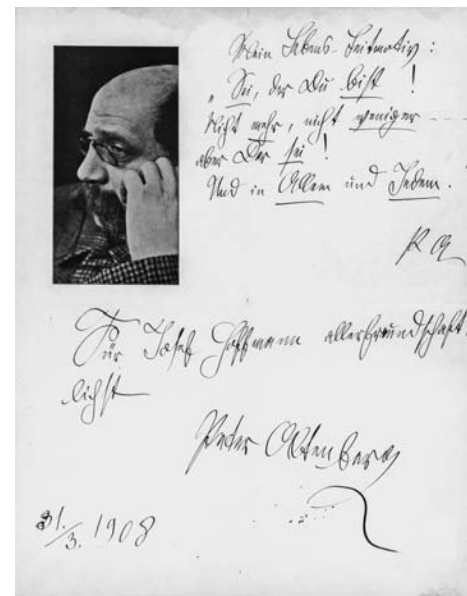 Mein Lebens-Leitmotiv :
„Sei, der Du bist !
Nicht mehr, nicht weniger - - -
aber Der sei !
Und in Allem und Jedem.
P A
Für Josef Hoffmann allerfreundschaft-
lichst
Peter Altenberg
31./3. 1908